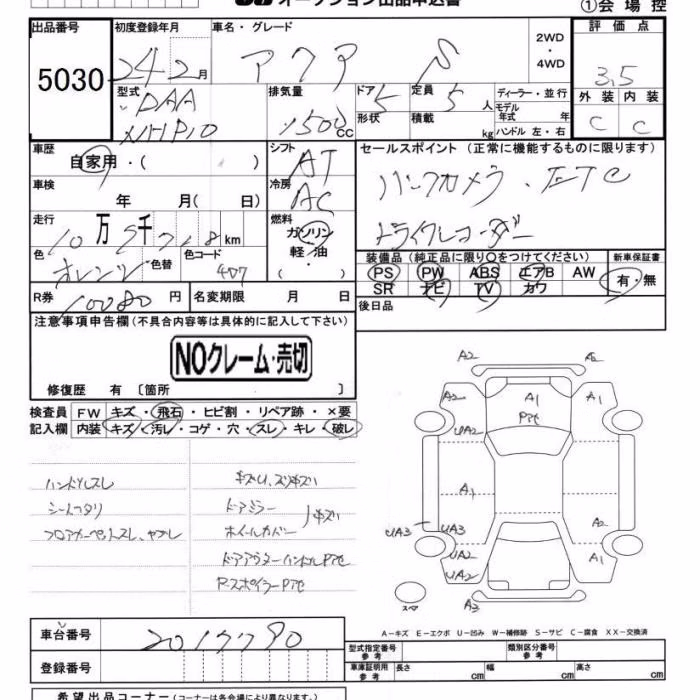 オークション出品申込書
①会場控
出品番号 初度登録年月 車名・グレード 2WD・4WD 評価点
5030 24 2月 アクア S 3.5
型式 排気量 ドア 定員 ディーラー・並行 外装 内装
DAA 1500CC 5 5人 モデル年式 年 C C
NHP10 形状 積載 kg ハンドル 左・右
車歴 シフト セールスポイント(正常に機能するものに限ります)
自家用・( ) AT
車検 冷房 バックカメラ・ETC
年 月( 日) AC
走行 燃料 ドライブレコーダー
10万 千 km ガソリン
色 色替 色コード 軽・油 装備品(純正品に限り○をつけてください) 新車保証書
オレンジ 407 ・( ) PS PW ABS エアB AW 有・無
R券 10080円 名変期限 月 日 SR ナビ TV カワ
後日品
注意事項申告欄(不具合内容等は具体的に記入して下さい)
NOクレーム・売切
修復歴 有 〔箇所 〕
検査員 FW キズ・飛石・ヒビ割・リペア跡・×要
記入欄 内装 キズ・汚レ・コゲ・穴・スレ・キレ・破レ
ハンドルスレ キズU、スリキズ
シートヘタリ ドアミラー キズ
フロアカーペットスレ、ヤブレ ホイールカバー
ドアアウターハンドルPアセ
RスポイラーPアセ
A2 A2
A2 A1 A1
UA2 Pアセ
A1
UA3 UA3 A2
UA2 A1
UA2
スペア A3
A―キズ E―エクボ U―凹み W―補修跡 S―サビ C―腐食 XX―交換済
車台番号 2017790
型式指定番号 参考 類別区分番号 参考
登録番号 車庫証明用 参考 長さ cm 幅 cm 高さ cm
希望出品コーナー(コーナーは各会場により異なります。)